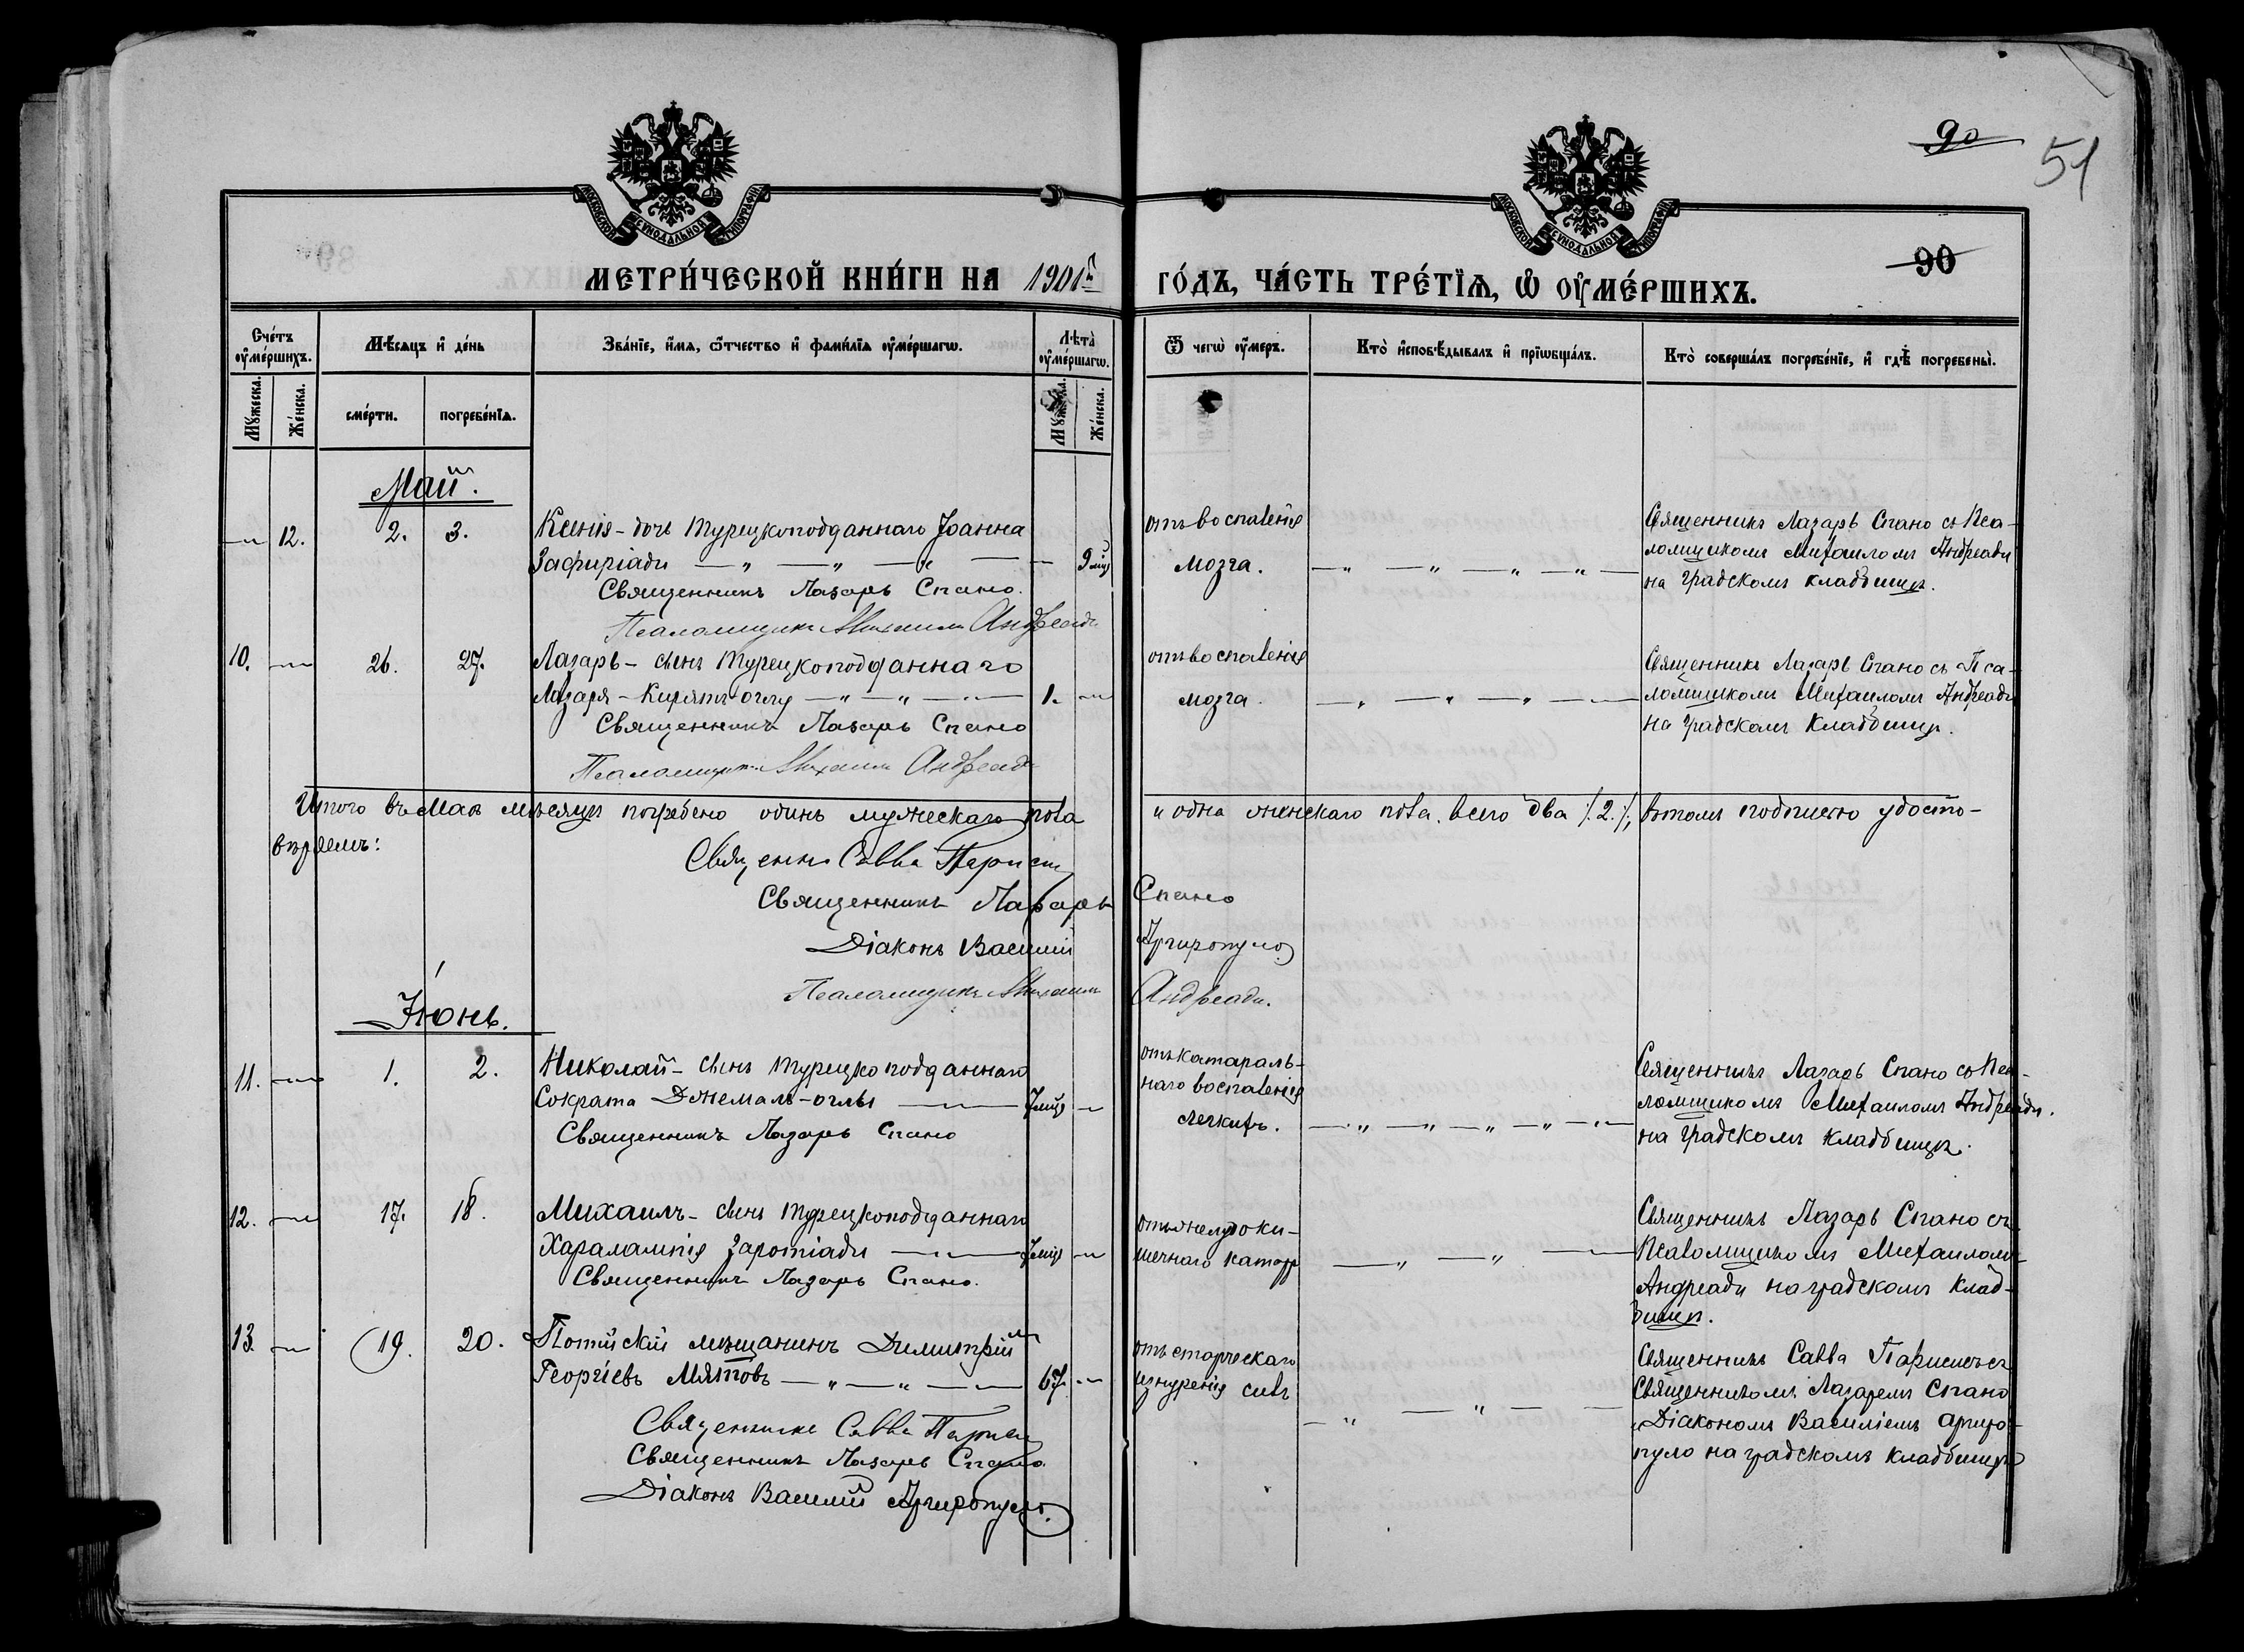 90
51
МОСКОВСКОЙ СУНОДАЛЬНОЙ ТИПОГРАФІИ
МОСКОВСКОЙ СУНОДАЛЬНОЙ ТИПОГРАФІИ
90
МЕТРИ́ЧЕСКОЙ КНИ́ГИ НА 1901й ГО́ДЪ, ЧА́СТЬ ТРЕ́ТЇѦ, Ѡ҆ ОУ҆МЕ́РШИХЪ.
Сче́тъ оу҆ме́ршихъ.
Мꙋ́жеска.
Же́нска.
Мѣ́сяцъ и҆ де́нь
сме́рти.
погребе́нїѧ.
Зва́нїе, и҆́мѧ, ѻ҆́тчество и҆ фами́лїѧ оу҆ме́ршагѡ.
Лѣ́та оу҆ме́ршагѡ.
Мꙋ́жеска.
Же́нска.
Ѿ чегѡ̀ оу҆́меръ.
Кто̀ и҆сповѣ́дывалъ и҆ прїѡбща́лъ.
Кто̀ соверша́лъ погребе́нїе, и҆ гдѣ̀ погребены̀.
Май.
— 12. 2. 3. Ксенія - дочь турецкоподданнаго Іоанна
Зафиріади — „ — „ — „ — — 9 мц
Священникъ Лазарь Спано.
Псаломщикъ Михаилъ Андреади
отъ воспаленія
мозга.
Священникъ Лазарь Спано съ Пса-
ломщикомъ Михаиломъ Андреади
на градскомъ кладбищѣ.
10. — 26. 27. Лазарь - сынъ турецкоподданнаго
Лазаря - Кирятъ-оглу — „ — „ — 1. —
Священникъ Лазарь Спано
Псаломщикъ Михаилъ Андреади
отъ воспаленія
мозга.
Священникъ Лазарь Спано съ Пса-
ломщикомъ Михаиломъ Андреади
на градскомъ кладбищѣ.
Итого въ Маѣ мѣсяцѣ погребено одинъ мужескаго пола и одна женскаго пола. всего два /:2:/, въ томъ подписью удосто-
вѣряемъ:
Священникъ Савва Париси
Священникъ Лазарь Спано
Діаконъ Василій Аргиропуло
Псаломщикъ Михаилъ Андреади.
Іюнь.
11. — 1. 2. Николай - сынъ турецкоподданнаго
Сократа Джемалъ-оглы — 7 мц —
Священникъ Лазарь Спано
отъ катараль-
наго воспаленія
легкихъ.
Священникъ Лазарь Спано съ Пса-
ломщикомъ Михаиломъ Андреади.
на градскомъ кладбищѣ.
12. — 17. 18. Михаилъ - сынъ турецкоподданнаго
Харалампія Заротіади — 7 мц —
Священникъ Лазарь Спано.
отъ желудоки-
шечнаго катарр
Священникъ Лазарь Спано съ
Псаломщикомъ Михаиломъ
Андреади на градскомъ клад-
бищѣ.
13. — 19. 20. Потійскій мѣщанинъ Димитрій
Георгіевъ Мятовъ — „ — „ — 67. —
Священникъ Савва Париси
Священникъ Лазарь Спано.
Діаконъ Василій Аргиропуло.
отъ старческаго
изнуренія силъ
Священникъ Савва Париси съ
Священникомъ Лазаремъ Спано
и Діакономъ Василіемъ Аргиро-
пуло на градскомъ кладбищѣ